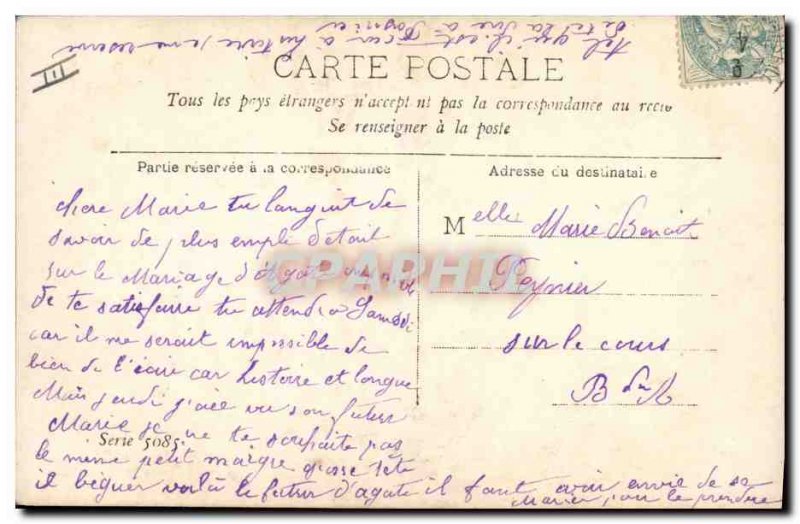 CARTE POSTALE
Tous les pays étrangers n'acceptent pas la correspondance au recto
Se renseigner à la poste
Partie réservée à la correspondance
Adresse du destinataire
chere Marie tu languit de
savoir de plus emple detail
sur le Mariage d'Agate
de te satisfaire tu attendra Samedi
car il me serait impossible de
bien de l'écrire car listoire et longue
Mais jeudi j'aie vu son futur
Marie je ne te souhaite pas
Serie 5085.
le meme petit maigre grosse tete
il béguer voilà le futur d'agate il faut avoir envie de se
Marier, pour le prendre
tel qui il est
M elle Marie Benoit
Peynier
sur le cours
B d R
III
CPAPHIL